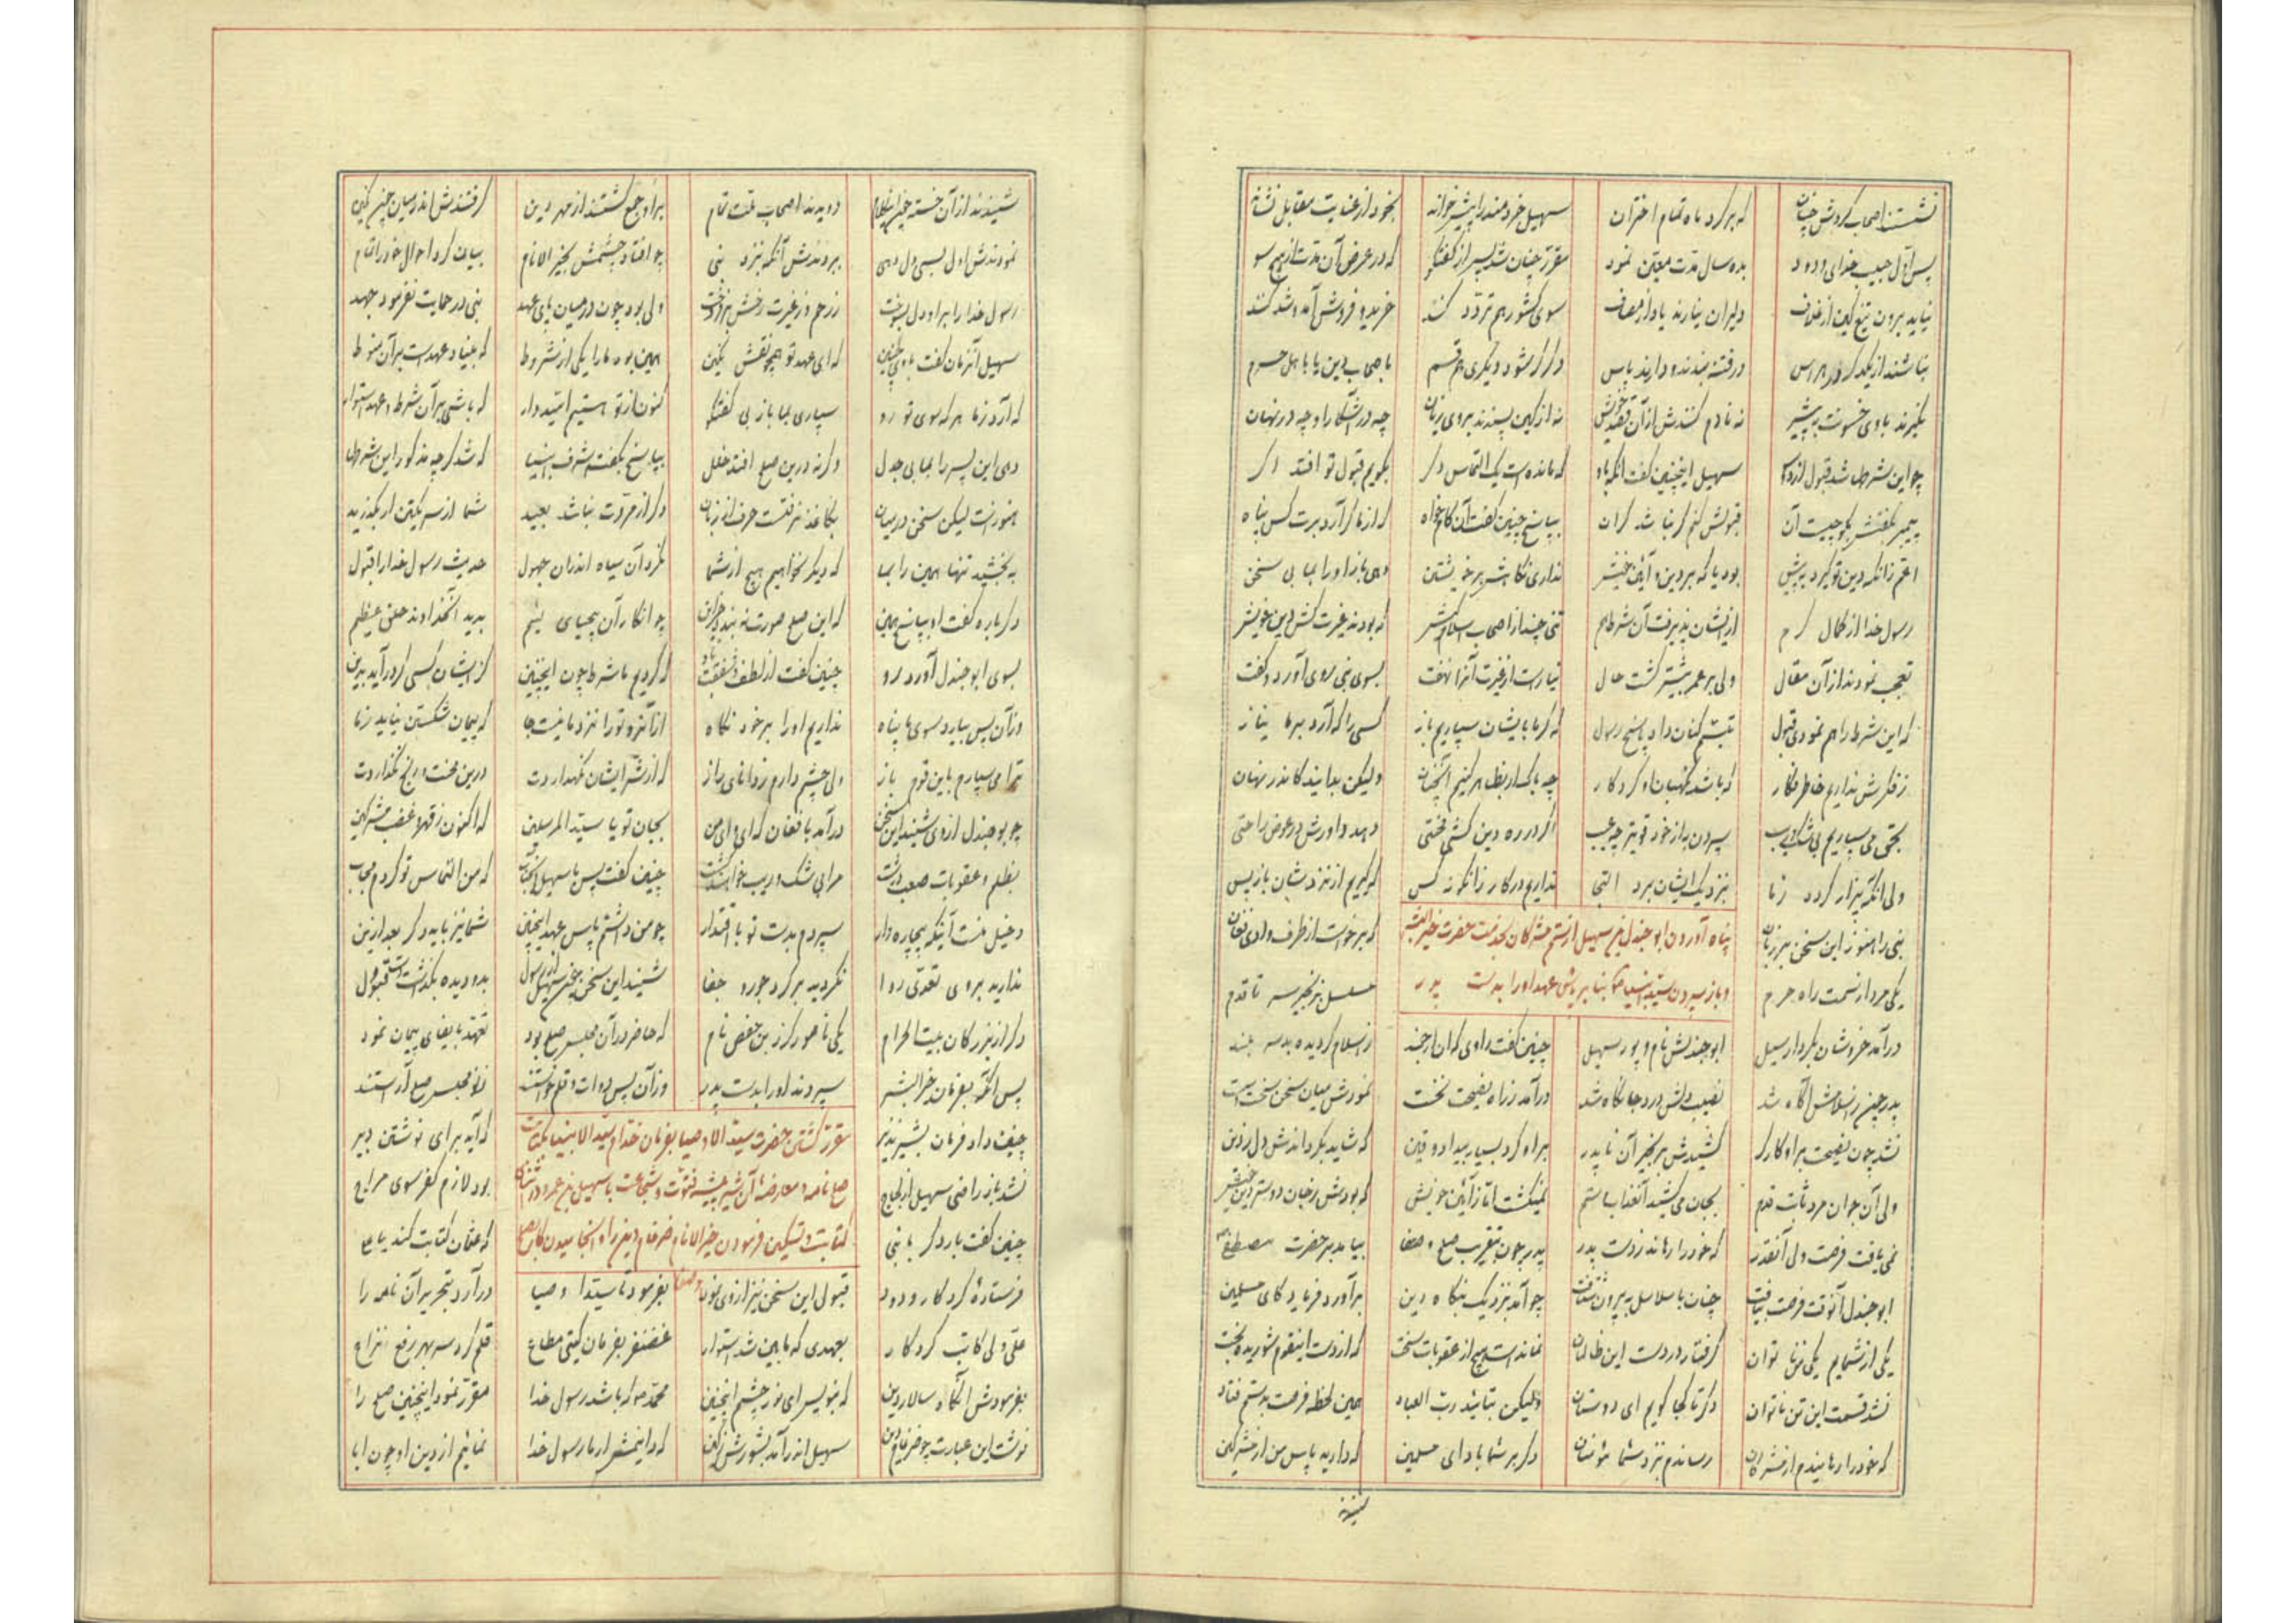 نشستند اصحاب کردش چنان
که بر گرد ماه تمام اختران
سهیل خردمند را پیش خواند
بخود از عنایت مقابل نشاند
پس اول حبیب خدای ودود
بده سال مدت معین نمود
مقرر چنان شد پس از گفتگو
که در عرض آن مدت از هیچ سو
نیاید برون تیغ کین از غلاف
دلیران نیارند یاد از مصاف
سوی کشور هم تردد کنند
خرید و فروش آمد و شد کنند
نباشند از یکدگر در هراس
در فتنه بندند و دارند پاس
دگر گر شود دیگری هم قسم
باصحاب دین یا باهل حرم
نگیرند با وی خشونت به پیش
نه نادم کنندش از آن قصد خویش
نه از کین پسندند بروی زیان
چه در آشکارا و چه در نهان
چو این شرطها شد قبول از دو سو
سهیل اینچنین گفت آنگه باو
که مانده است یک التماس دگر
بگویم قبول تو افتد اگر
پیمبر بگفتش بگو چیست آن
قبولش کنم گر نباشد گران
بپاسخ چنین گفت آن کام خواه
که از ما گر آرد برت کس پناه
اعم زانکه دین تو گیرد به پیش
بود یا که بر دین و آئین خویش
نداری نگاهش بر خویشتن
دهی باز او را بما بی سخن
رسول خدا از کمال کرم
از ایشان پذیرفت آن شرط هم
تنی چند از اصحاب اسلام کیش
که بودند غیرت کش دین خویش
تعجب نمودند از آن مقال
ولی بر عمر بیشتر گشت حال
نیارست از غیرت آنرا نهفت
بسوی نبی روی آورد و گفت
که این شرط را هم نمودی قبول
تبسم کنان داد پاسخ رسول
که گر ما بایشان سپاریم باز
کسی را که آرد بما نیاز
ز فکرش نداریم خاطر فکار
که باشد نگهبان او کردگار
چه باک ار بظاهر کنیم آنچنان
ولیکن بدانید کاندر نهان
بحق می سپاریم بی شک و ریب
سپردن به از خود قویتر چه عیب
اگر در ره دین کشد محنتی
دهد داورش در عوض راحتی
ولی آنکه بیزار گردد ز ما
بنزدیک ایشان برد التجا
نداریم در کار زانگونه کس
که گیریم از نزدشان باز پس
پناه آوردن ابوجندل بن سهیل از ستم مشرکان بخدمت حضرت خیر البشر
و باز سپردن سید انبیا بنا بر پاس عهد او را بدست پدر
نبی را هنوز این سخن بر زبان
که برخواست از طرف وادی فغان
یکی مرد از سمت راه حرم
مسلسل بزنجیر سر تا قدم
درآمد خروشان بکردار سیل
ابوجندلش نام و پور سهیل
چنین گفت راوی که آن ارجمند
ز اسلام گردیده بد سربلند
پدر چون ز اسلامش آگاه شد
نصیب دلش درد جانکاه شد
درآمد ز راه نصیحت نخست
نمودش میان سخن سخت و سست
نشد چون نصیحت بر او کارگر
کشیدش بزنجیر آن نا پدر
بر او کرد بسیار بیداد و کین
که شاید بگرداندش دل ز دین
ولی آن جوان مرد ثابت قدم
بجان می کشید آنعذاب و ستم
نمیگشت اما ز آئین خویش
که بودش ز جان دوستر دین و کیش
نمی یافت فرصت ولی آنقدر
که خود را رهاند ز دست پدر
پدر چون بتقریب صلح و صفا
بیامد بر حضرت مصطفی
ابوجندل آنوقت فرصت بیافت
چنان با سلاسل به بیرون شتافت
چو آمد بنزدیک بنگاه دین
برآورد فریاد کای مسلمین
یکی از شمایم یکی ناتوان
گرفتار در دست این ظالمان
نمانده است هیچ از عقوبات سخت
که از دست اینقوم شوریده بخت
نشد قسمت این تن ناتوان
دگر تا کجا گویم ای دوستان
ولیکن بتائید رب العباد
همین لحظه فرصت بدستم فتاد
که خود را رهانیدم از مشرکان
رساندم بنزد شما مؤمنان
دگر بر شما باد ای مسلمین
که دارید پاس من از مشرکین
شنیدند از آن خسته چون این کلام
دویدند اصحاب ملت تمام
بر او جمع گشتند از مهر دین
گرفتندش اندر میان چون نگین
نمودندش اول بسی دل دهی
ببردندش آنگه بنزد نبی
چو افتاد چشمش بخیر الانام
بیان کرد احوال خود را تمام
رسول خدا را بر او دل بسوخت
ز رحم و ز غیرت رخش برفروخت
ولی بود چون در میان پای عهد
نبی در حمایت نفرمود جهد
سهیل آنزمان گفت با وی چنین
که ای عهد تو همچو نقش نگین
همین بوده ما را یکی از شروط
که بنیاد عهدست بر آن منوط
که آرد ز ما هر که سوی تو رو
سپاری بما باز بی گفتگو
کنون از تو هستیم امیدوار
که باشی بر آن شرط و عهد استوار
دهی این پسر را بما بی جدل
وگرنه درین صلح افتد خلل
بپاسخ بگفت اشرف انبیا
که شد گرچه مذکور این شرطها
هنوز است لیکن سخن در میان
بکاغذ نرفتست حرف از زبان
دگر از مروت نباشد بعید
شما از سر یکتن ار بگذرید
به بخشید تنها همین را بما
که دیگر نخواهیم هیچ از شما
نکرد آن سیاه اندران جهول
حدیث رسول خدا را قبول
دگر باره گفت او بپاسخ همین
که این صلح صورت نه بندد جز این
چو انکار آن بیحیای لئیم
بدید آنخداوند خلق عظیم
بسوی ابوجندل آورد رو
چنین گفت از لطف و شفقت باو
که کردیم ما شرط چون اینچنین
کز ایشان کسی گر درآید بدین
وز آن پس بیارد سوی ما پناه
نداریم او را بر خود نگاه
از آنرو تو را نزد ما نیست جا
که پیمان شکستن نیاید ز ما
ترا می سپارم باین قوم باز
ولی چشم دارم ز دانای راز
که از شر ایشان نگهداردت
درین محنت و رنج نگذاردت
چو بوجندل از وی شنید این سخن
درآمد بافغان که ای وای من
بجان تو یا سید المرسلین
که اکنون ز قهر و غضب مشرکین
بظلم و عقوبات صعب درشت
مرا بی شک و ریب خواهند کشت
چنین گفت پس با سهیل آنجناب
که من التماس تو کردم مجاب
دخیل منست آینکه بیچاره وار
سپردم بدست تو با اقتدار
چو من داشتم پاس عهد اینچنین
شما نیز باید دگر بعد ازین
ندارید بر وی تعدی روا
نگردید بر گرد جور و جفا
شنید این سخن چون سهیل از رسول
بدو دیده بگذاشت دست قبول
دگر از بزرگان بیت الحرام
یکی نامور کرز بن حفص نام
که حاضر در آن مجلس صلح بود
تعهد بایفای پیمان نمود
پس آنگه بفرمان خیر البشر
سپردند او را بدست پدر
وز آن پس دوات و قلم خواستند
ز نو مجلس صلح آراستند
مقرر گشتن حضرت سید الاوصیا بفرمان خدا و سید الانبیا بکتابت
صلح نامه و معارضه آن شیر بیشه فتوت و شجاعت با سهیل بن عمرو در اثنای
کتابت و تسکین فرمودن خیر الانام ضرغام دین را و انجامیدن کار بصلح و صفا
چنین داد فرمان بشیر نذیر
که آید برای نوشتن دبیر
نشد باز راضی سهیل از لجاج
بود لازم کفر سوی مزاج
چنین گفت بار دگر با نبی
که عثمان کتابت کند یا علی
فرستادهٔ کردگار ودود
قبول این سخن نیز از وی نمود
بفرمود تا سید اوصیا
درآرد بتحریر آن نامه را
علی ولی کاتب کردگار
بعهدی که مابین شد استوار
غضنفر بفرمان گیتی مطاع
قلم کرد سر بهر رفع نزاع
بفرمودش آنگاه سالار دین
که بنویس ای نور چشم اینچنین
محمد که باشد رسول خدا
مقرر نمود اینچنین صلح را
نوشت این عبارت چو ضرغام دین
سهیل اندر آمد بشورش ز کین
که دانیمش ار ما رسول خدا
نمائیم از دین او چون ابا